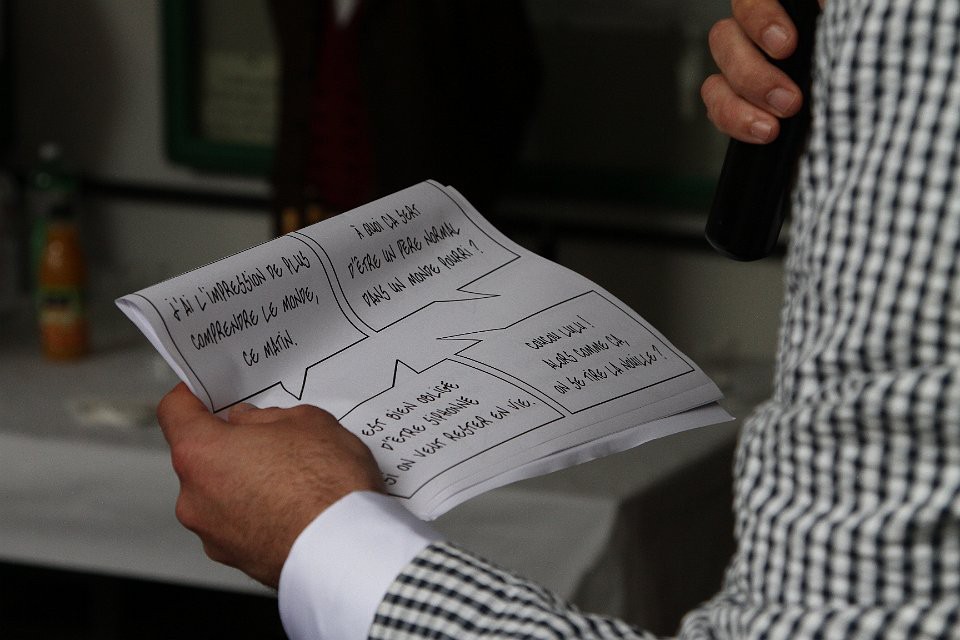 J'AI L'IMPRESSION DE PLUS
COMPRENDRE LE MONDE,
CE MATIN.
À QUOI ÇA SERT
D'ÊTRE UN PÈRE NORMAL
DANS UN MONDE POURRI ?
COUCOU LULU !
ALORS COMME ÇA,
ON SE TIRE LA NOUILLE ?
EST BIEN OBLIGÉ
D'ÊTRE SIPHONNÉ
SI ON VEUT RESTER EN VIE.